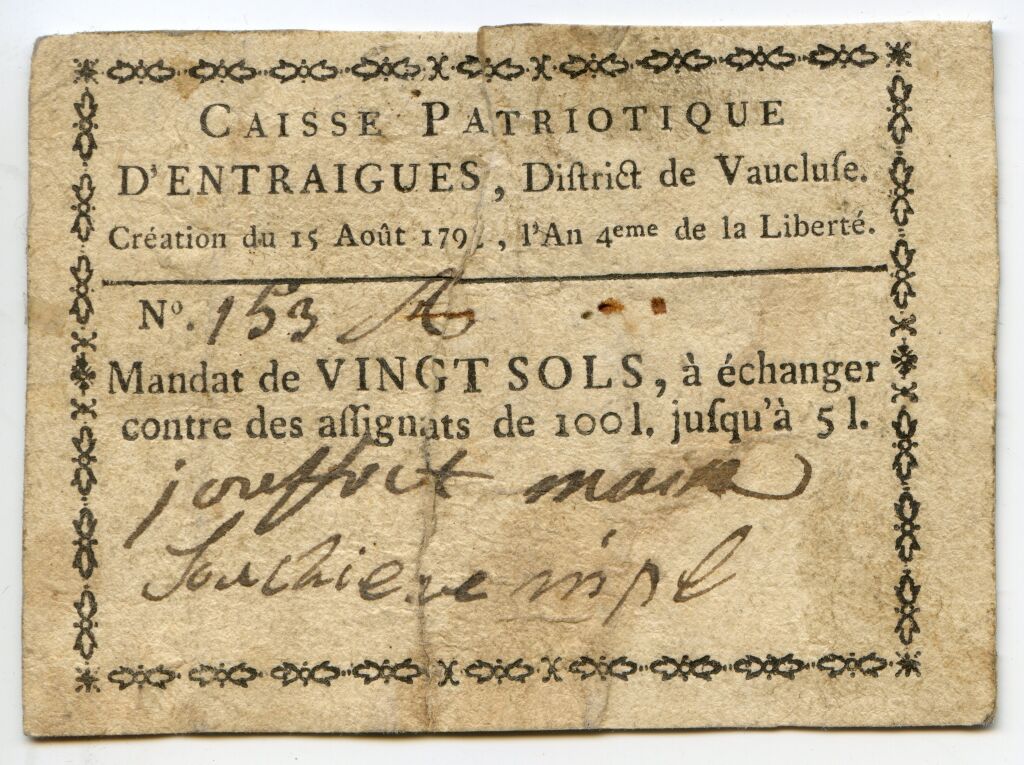 CAISSE PATRIOTIQUE
D'ENTRAIGUES, Diſtrict de Vaucluſe.
Création du 15 Août 179 , l'An 4eme de la Liberté.
Nº. 153
Mandat de VINGT SOLS, à échanger
contre des aſſignats de 100 l. juſqu'à 5 l.
jouffret maire